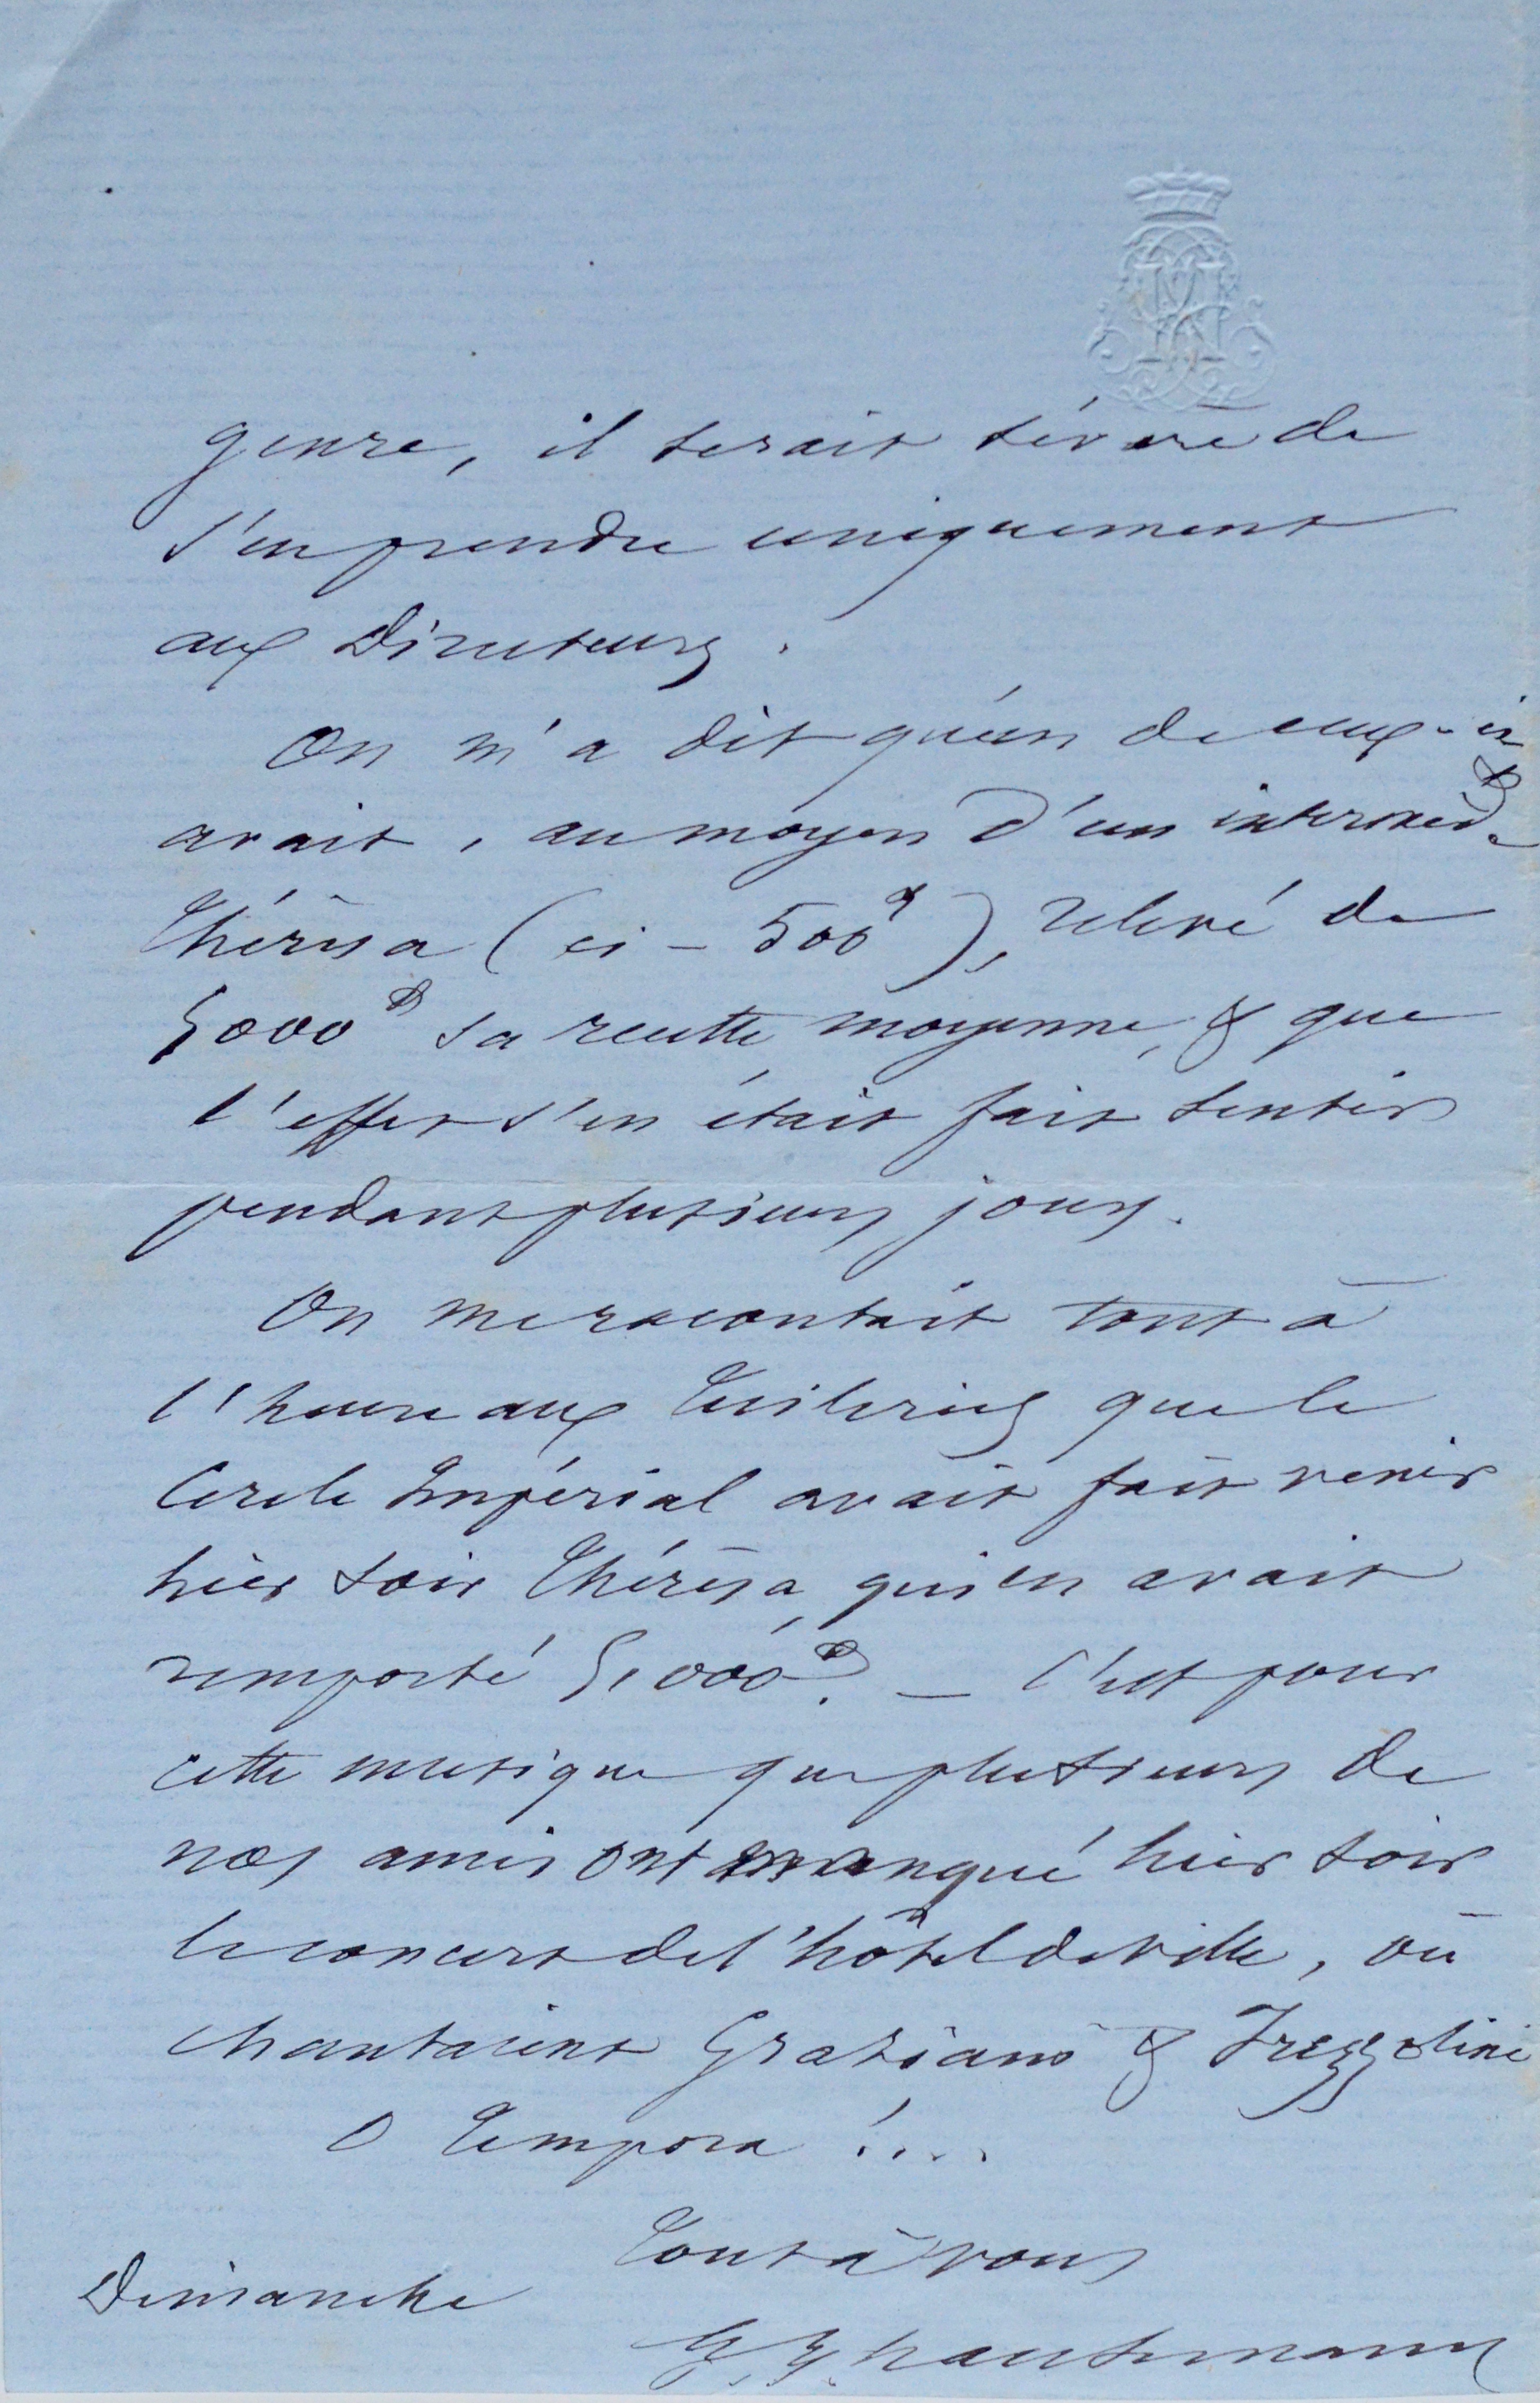 genre, il serait sévère de
s'en prendre uniquement
aux Directeurs.
On m'a dit qu'un de eux-ci
avait, au moyen d'un intermède
Thérésa (ci - 500 f), relevé de
5000 f sa recette moyenne, & que
l'effet s'en était fait sentir
pendant plusieurs jours.
On me racontait tout à
l'heure aux Tuileries que le
Cercle Impérial avait fait venir
hier soir Thérésa, qui en avait
remporté 5,000 f. — C'est pour
cette musique que plusieurs de
nos amis ont manqué hier soir
le concert de l'hôtel de ville, où
chantaient Graziani & Frezzolini
O Tempora !...
Tout à vous
Dimanche
G. E. Haussmann